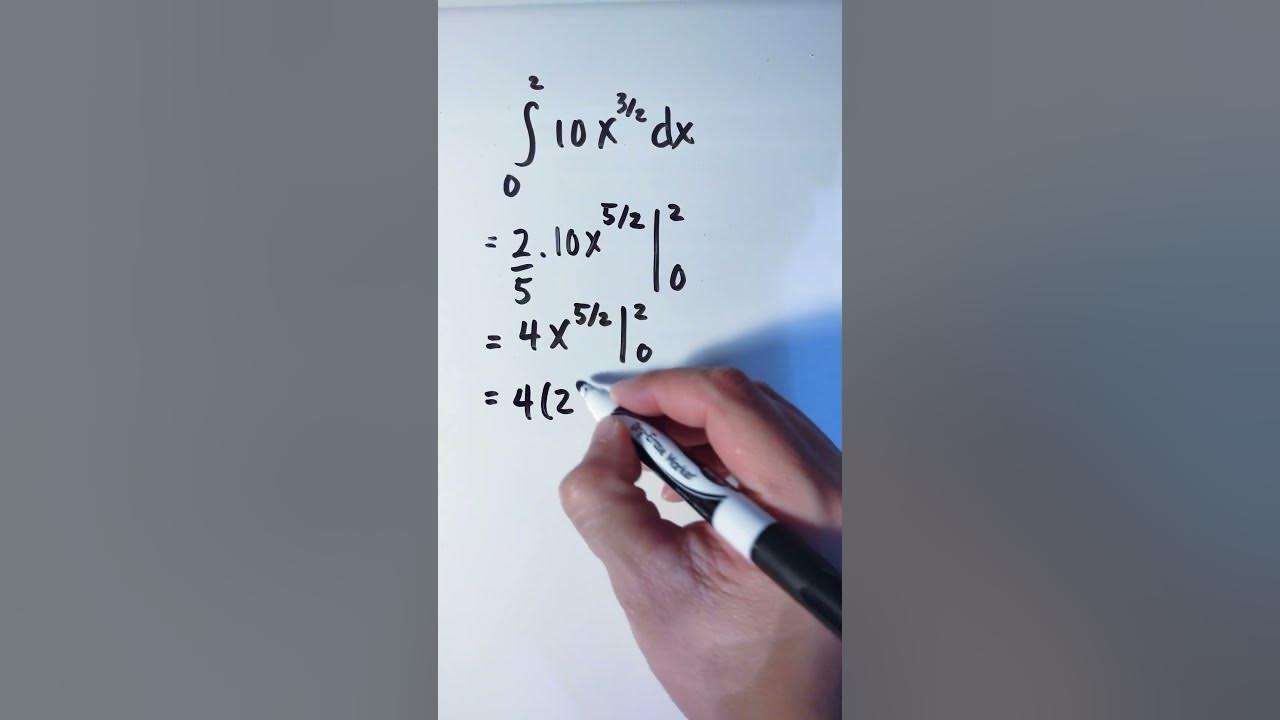 ∫₀² 10x^{3/2} dx
= 2/5 · 10x^{5/2} |₀²
= 4x^{5/2} |₀²
= 4(2
Dry-Erase Marker